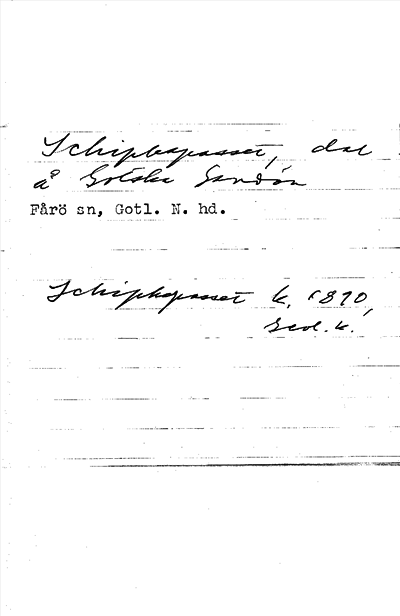 Schipkapasset, dal
å Gotska Sandön
Fårö sn, Gotl. N. hd.
Schipkapasset k. 1870,
Geol. k.